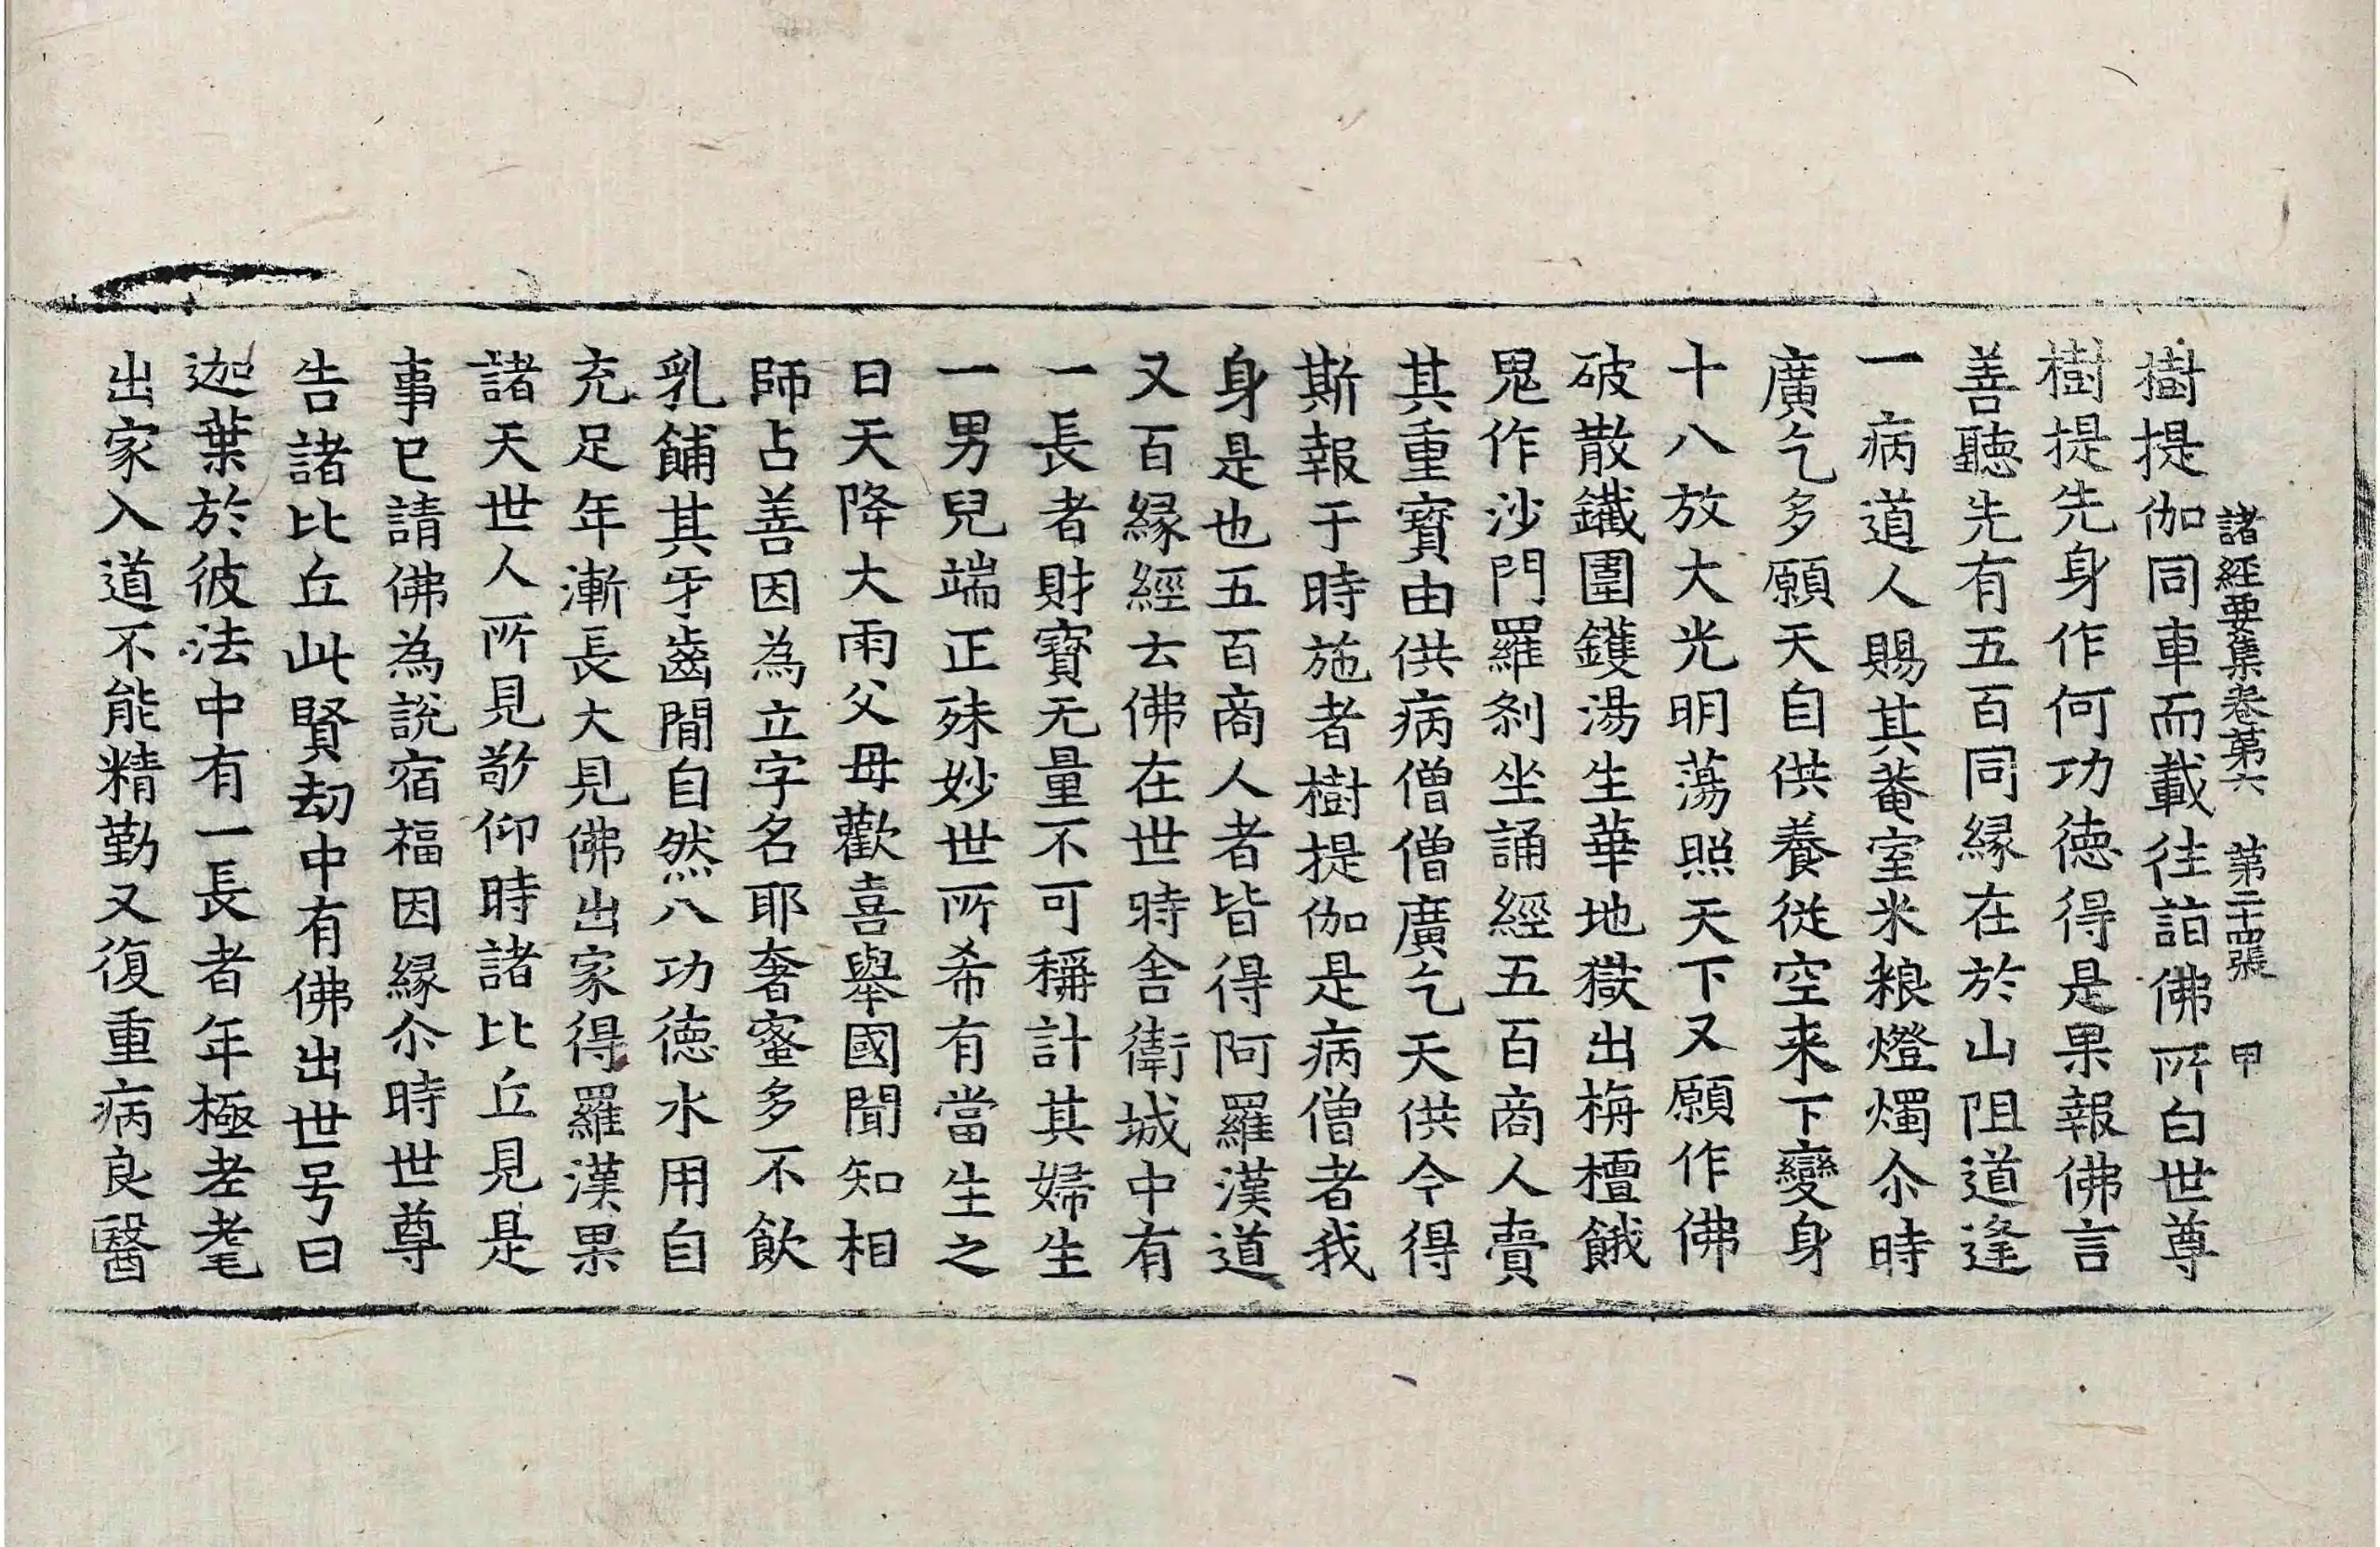 樹提伽同車而載往詣佛所白世尊
諸經要集卷第六　第二十四張　甲
樹提先身作何功德得是果報佛言
善聽先有五百同縁在於山阻道逢
一病道人賜其菴室米粮燈燭尒時
廣乞多願天自供養從空来下變身
十八放大光明蕩照天下又願作佛
破散鐵圍鑊湯生華地獄出栴檀餓
鬼作沙門羅剎坐誦經五百商人賣
其重寶由供病僧僧廣乞天供今得
斯報于時施者樹提伽是病僧者我
身是也五百商人者皆得阿羅漢道
又百縁經云佛在世時舎衛城中有
一長者財寶无量不可稱計其婦生
一男兒端正殊妙世所希有當生之
日天降大雨父母歡喜舉國聞知相
師占善因為立字名耶奢蜜多不飲
乳餔其牙齒間自然八功徳水用自
充足年漸長大見佛出家得羅漢果
諸天世人所見敬仰時諸比丘見是
事已請佛為說宿福因縁尒時世尊
告諸比丘此賢劫中有佛出世号曰
迦葉於彼法中有一長者年極老耄
出家入道不能精勤又復重病良醫